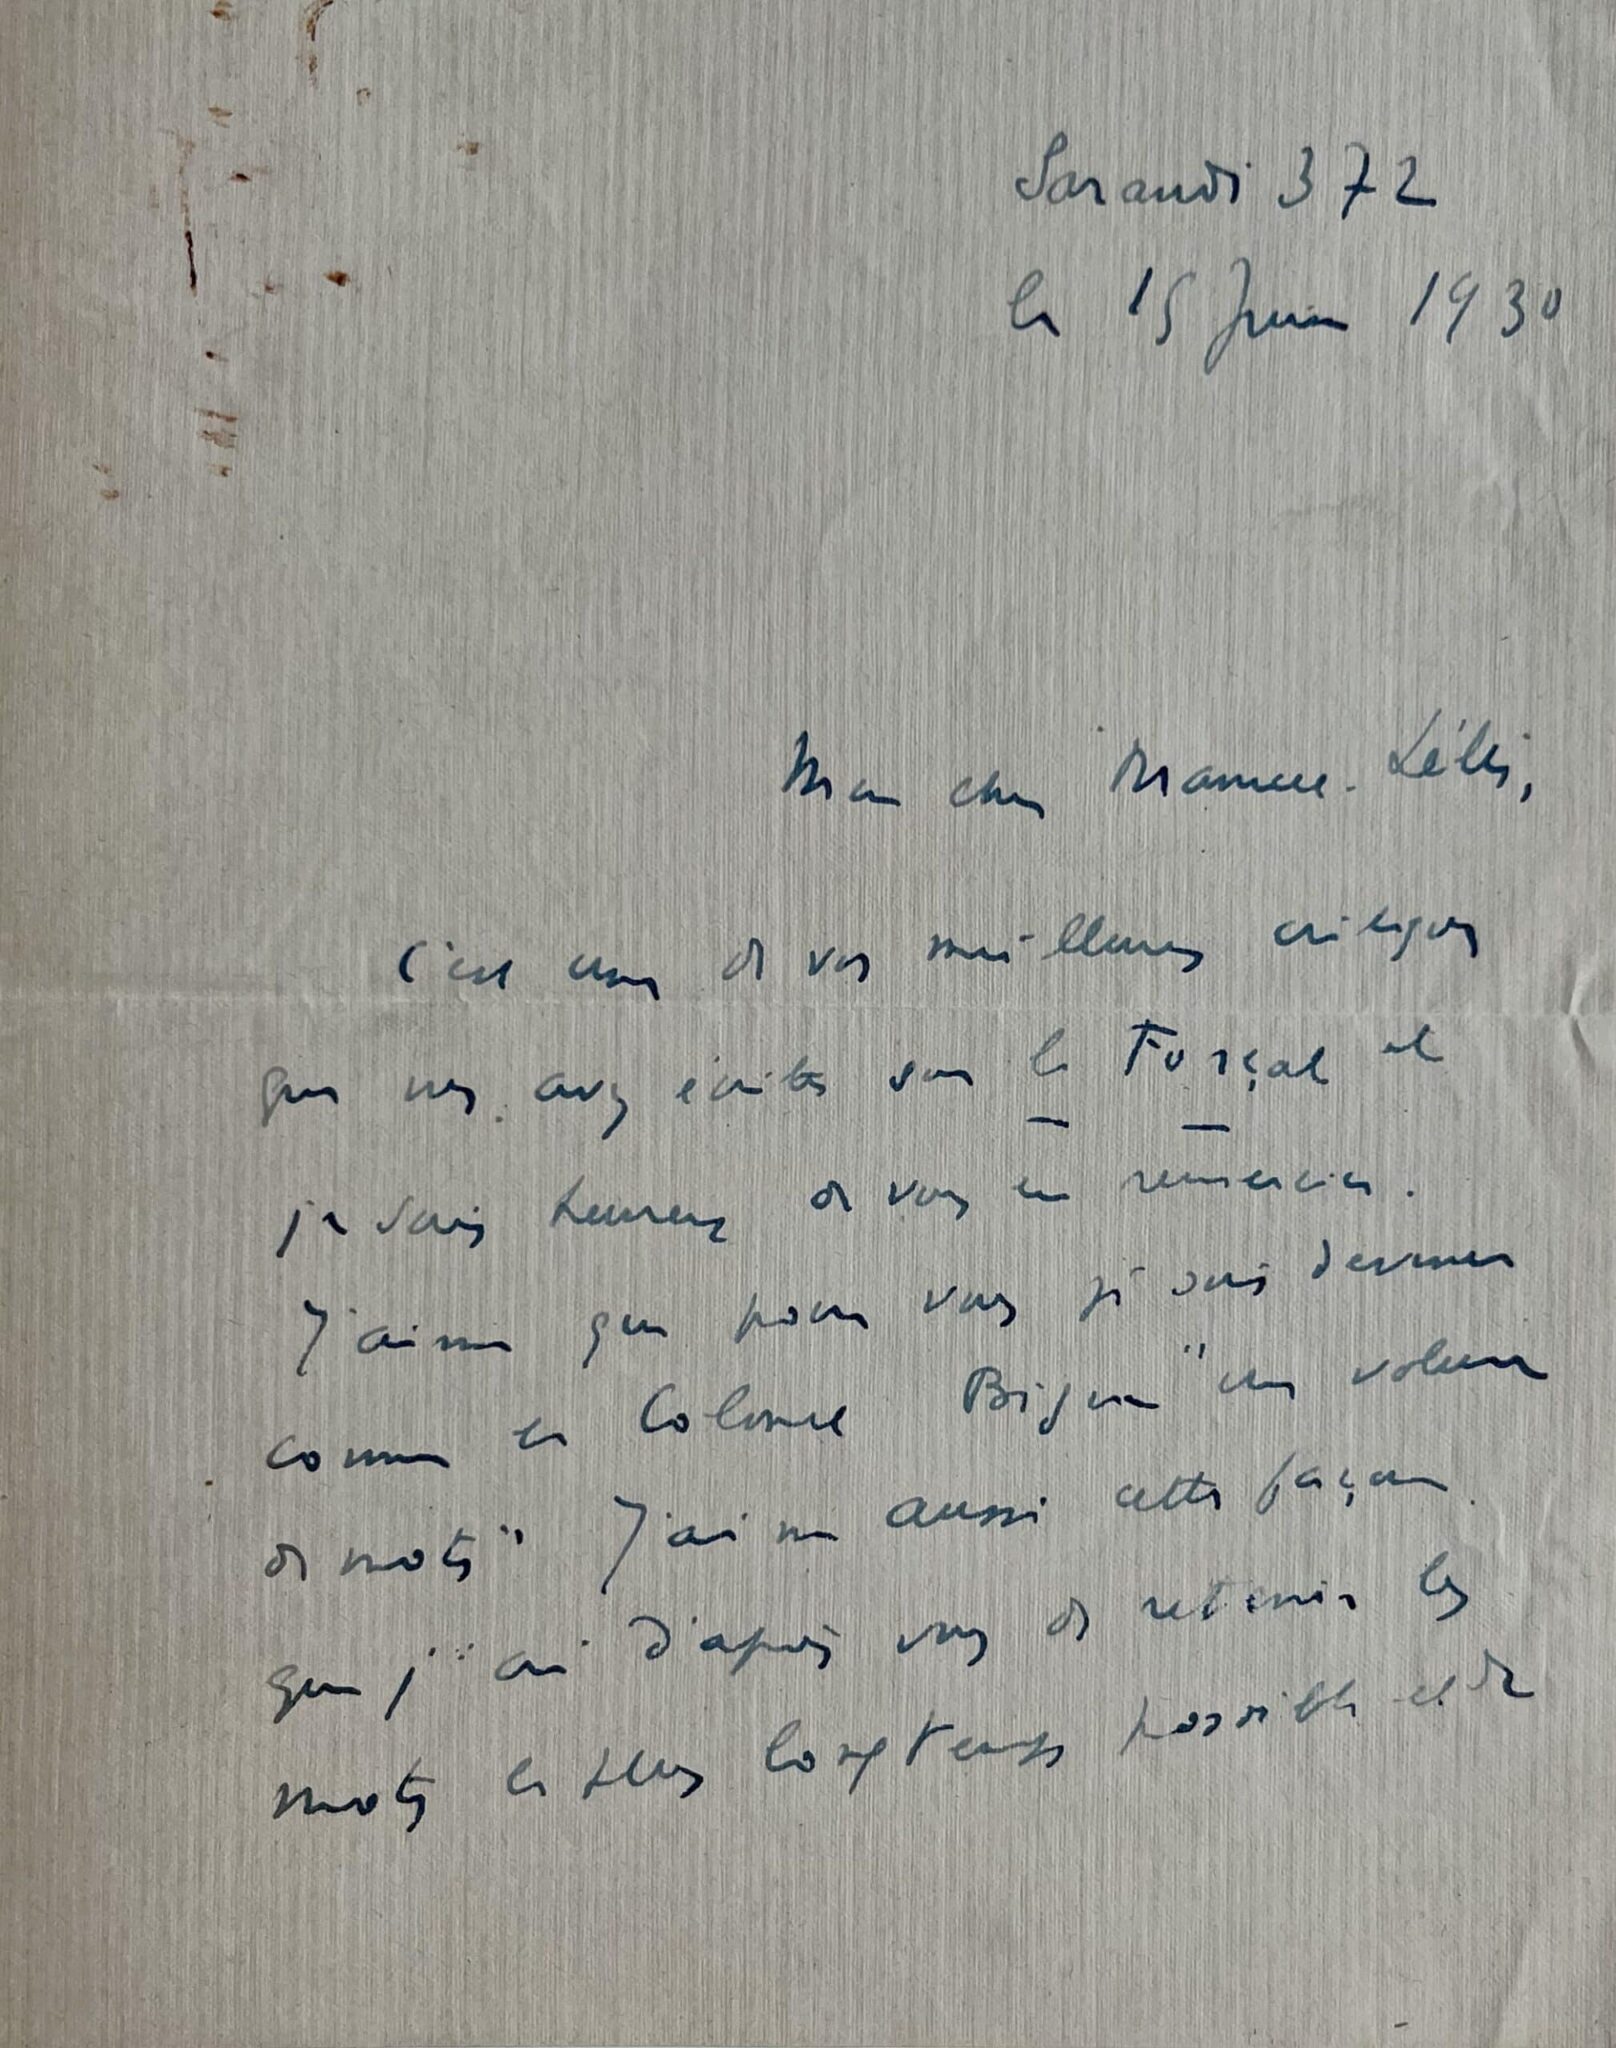 Sarandi 372
le 15 Juin 1930
Mon cher Marcel-Lélis,
C'est une de vos meilleures critiques
que vous avez écrites sur le Forçat et
je suis heureux de vous en remercier.
J'aime que pour vous je sois devenu
comme le Colonel Bigua "un voleur
de mots" J'aime aussi cette façon
que j'ai d'après vous de retenir les
mots le plus longtemps possible et de